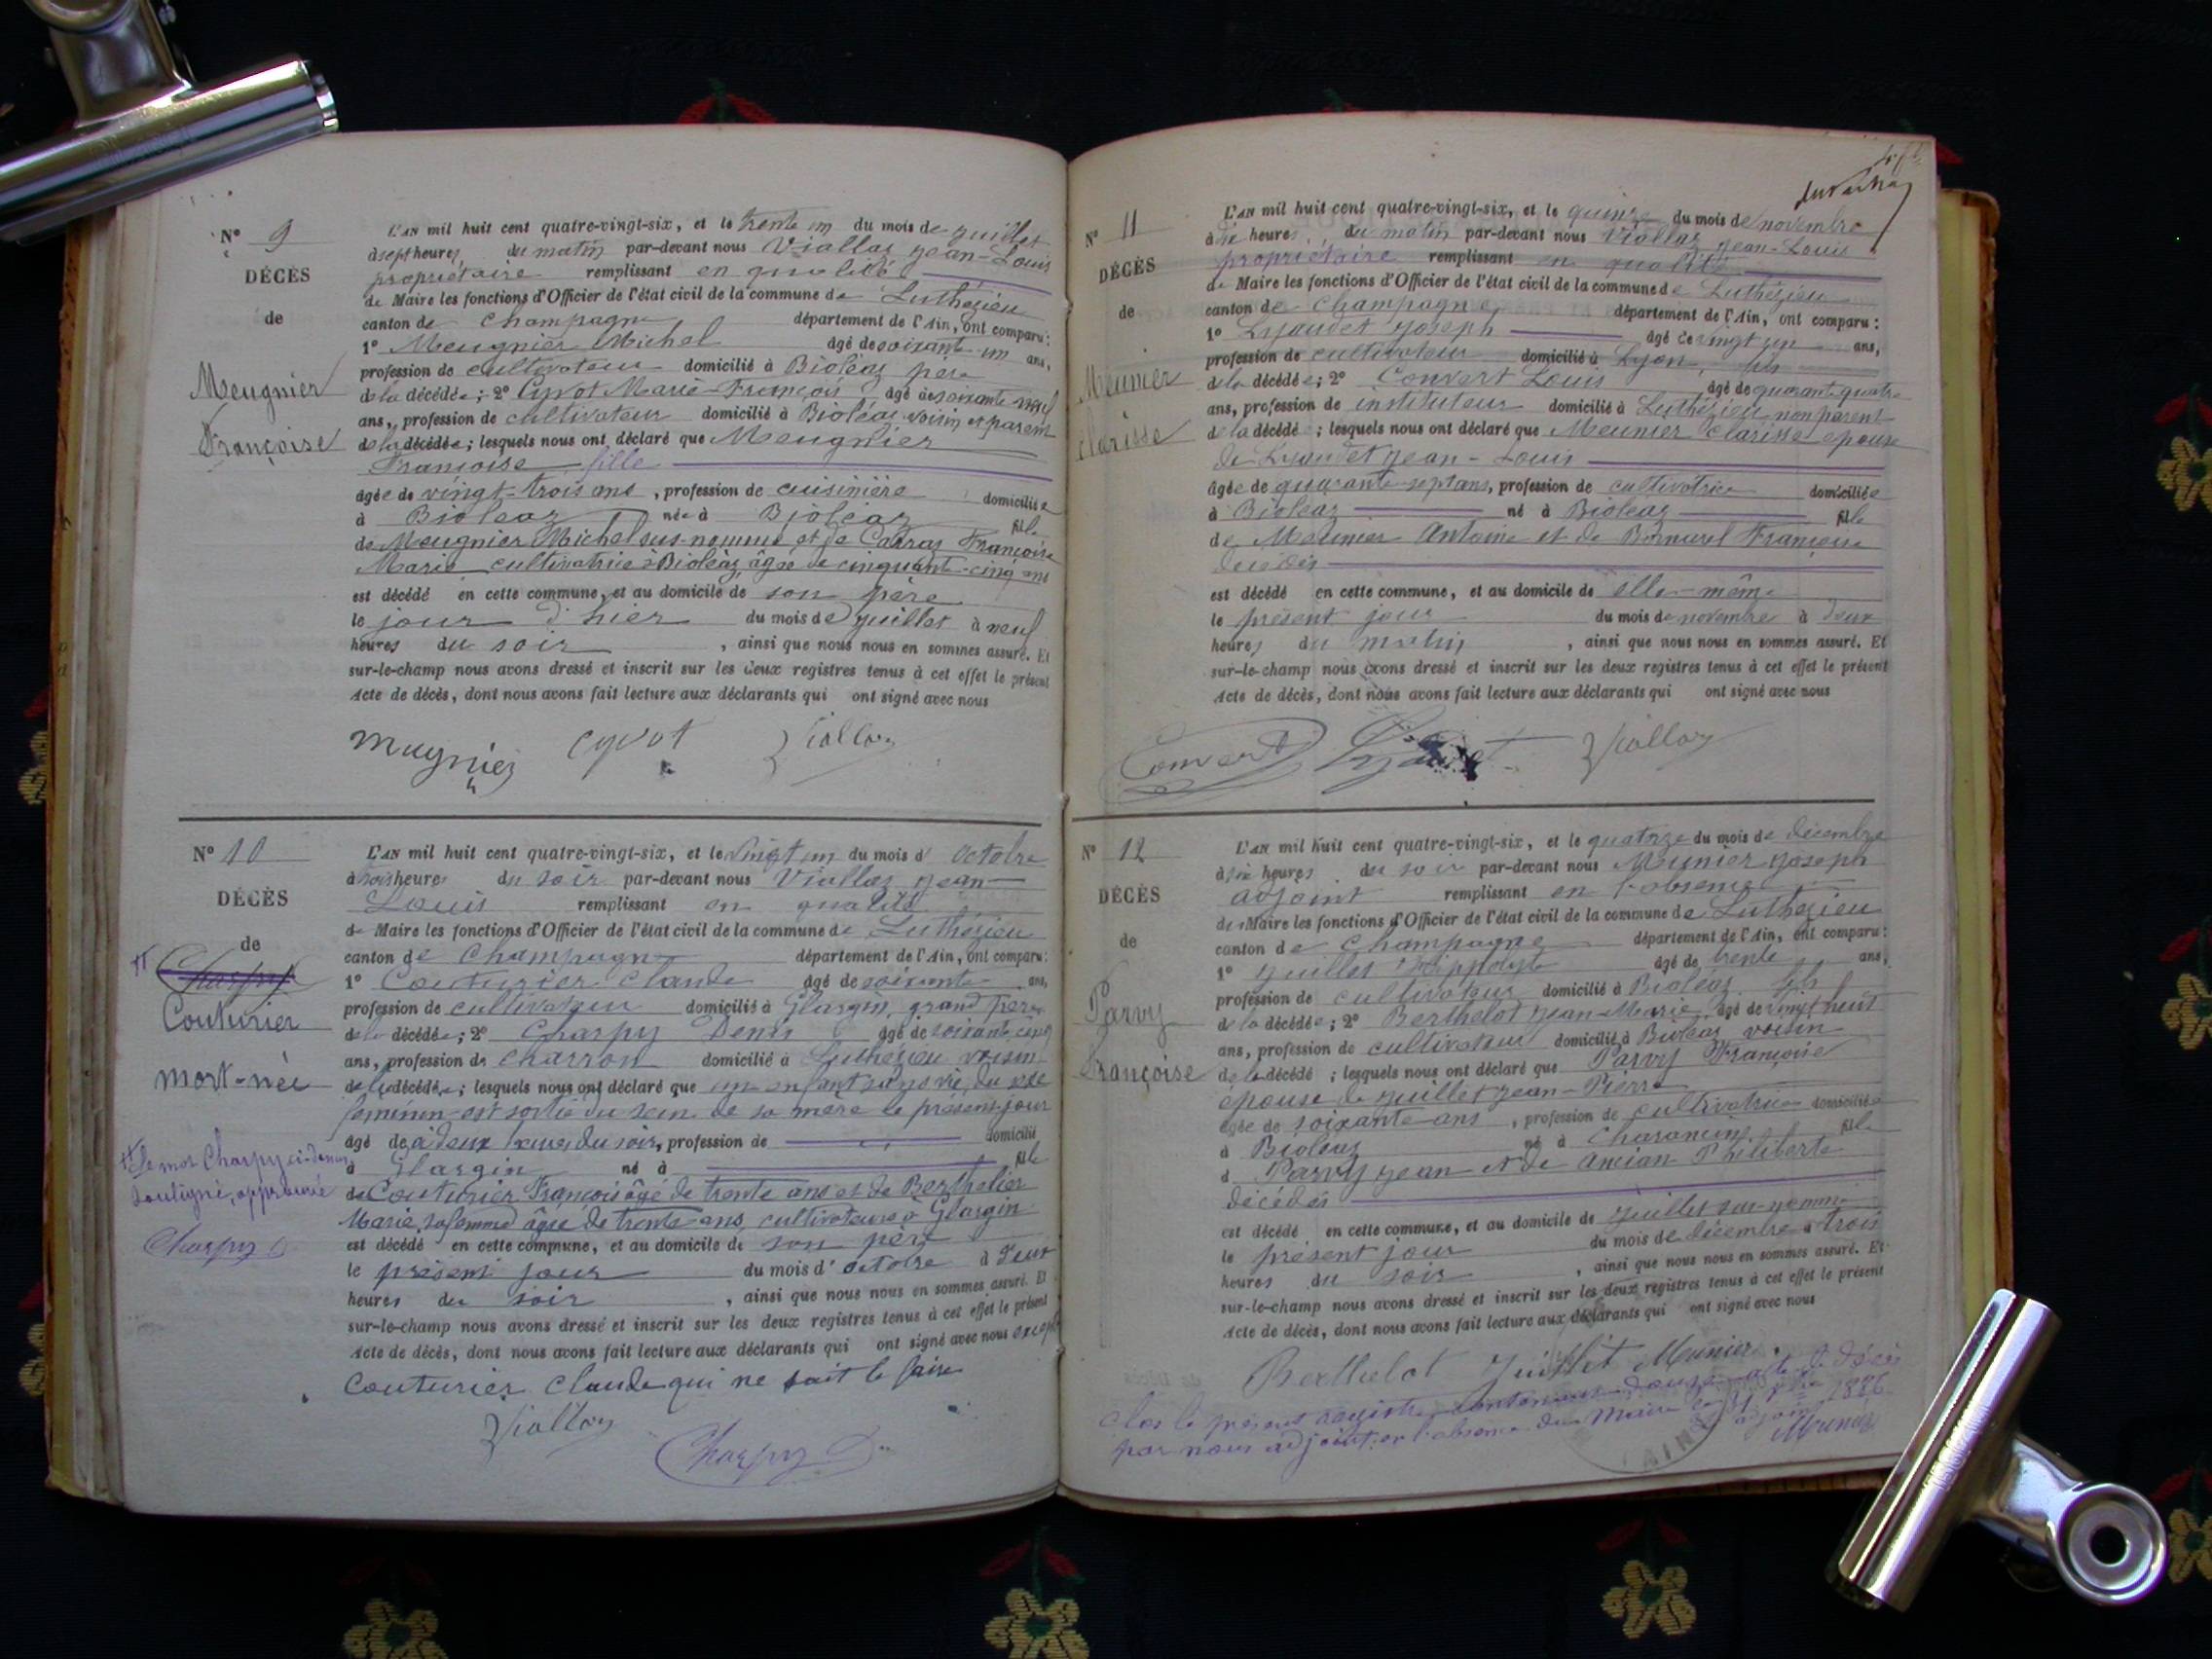 N° 9
DÉCÈS
de
Meugnier
Françoise
L'AN mil huit cent quatre-vingt-six, et le trente un du mois de juillet
à sept heures du matin par-devant nous Viallaz Jean-Louis
propriétaire remplissant en qualité
de Maire les fonctions d'Officier de l'état civil de la commune de Luthézieu
canton de Champagne département de l'Ain, ont comparu:
1° Meugnier Michel âgé de soixante un ans,
profession de cultivateur domicilié à Bioléaz père
de la décédée; 2° Cyvot Marie-François âgé de soixante neuf
ans, profession de cultivateur domicilié à Bioléaz voisin et parent
de la décédée; lesquels nous ont déclaré que Meugnier
Françoise fille
âgée de vingt-trois ans, profession de cuisinière domiciliée
à Bioleaz née à Bioléaz fille
de Meugnier Michel sus-nommé et de Carraz Françoise
Marie cultivatrice à Bioléaz, âgée de cinquante-cinq ans
est décédé en cette commune, et au domicile de son père
le jour d'hier du mois de juillet à neuf
heures du soir, ainsi que nous nous en sommes assuré. Et
sur-le-champ nous avons dressé et inscrit sur les deux registres tenus à cet effet le présent
Acte de décès, dont nous avons fait lecture aux déclarants qui ont signé avec nous
Mugnier Cyvot Viallaz
N° 10
DÉCÈS
de
Charpy
Couturier
mort-née
Le mot Charpy ci-dessus
souligné, approuvé
Charpy D
L'AN mil huit cent quatre-vingt-six, et le vingt un du mois d'octobre
à trois heures du soir par-devant nous Viallaz Jean-
Louis remplissant en qualité
de Maire les fonctions d'Officier de l'état civil de la commune de Luthézieu
canton de Champagne département de l'Ain, ont comparu:
1° Couturier Claude âgé de soixante ans,
profession de cultivateur domicilié à Glargin, grand père
de la décédée; 2° Charpy Denis âgé de soixante cinq
ans, profession de charron domicilié à Luthézieu voisin
de la décédée; lesquels nous ont déclaré que un enfant sans vie, du sexe
féminin est sortie du sein de sa mère le présent jour
âgé de à deux heures du soir, profession de domicilié
à Glargin né à fille
de Couturier François âgé de trente ans et de Berthelier
Marie, sa femme âgée de trente ans, cultivateurs à Glargin
est décédé en cette commune, et au domicile de son père
le présent jour du mois d'octobre à deux
heures du soir, ainsi que nous nous en sommes assuré. Et
sur-le-champ nous avons dressé et inscrit sur les deux registres tenus à cet effet le présent
Acte de décès, dont nous avons fait lecture aux déclarants qui ont signé avec nous excepté
Couturier Claude qui ne sait le faire
Viallaz
Charpy D
N° 11
DÉCÈS
de
Meunier
Clarisse
L'AN mil huit cent quatre-vingt-six, et le quinze du mois de novembre
à six heures du matin par-devant nous Viallaz Jean-Louis
propriétaire remplissant en qualité
de Maire les fonctions d'Officier de l'état civil de la commune de Luthézieu
canton de Champagne département de l'Ain, ont comparu:
1° Lyaudet Joseph âgé de vingt un ans,
profession de cultivateur domicilié à Lyon, fils
de la décédée; 2° Convert Louis âgé de quarante quatre
ans, profession de instituteur domicilié à Luthézieu non parent
de la décédé; lesquels nous ont déclaré que Meunier Clarisse épouse
de Lyaudet Jean-Louis
âgée de quarante-sept ans, profession de cultivatrice domiciliée
à Bioleaz né à Bioleaz fille
de Meunier Antoine et de Bornarel Françoise
décédés
est décédé en cette commune, et au domicile de elle-même
le présent jour du mois de novembre à deux
heures du matin, ainsi que nous nous en sommes assuré. Et
sur-le-champ nous avons dressé et inscrit sur les deux registres tenus à cet effet le présent
Acte de décès, dont nous avons fait lecture aux déclarants qui ont signé avec nous
Convert Viallaz
N° 12
DÉCÈS
de
Parvy
Françoise
L'AN mil huit cent quatre-vingt-six, et le quatorze du mois de décembre
à six heures du soir par-devant nous Meunier Joseph
adjoint remplissant en l'absence
du Maire les fonctions d'Officier de l'état civil de la commune de Luthézieu
canton de Champagne département de l'Ain, ont comparu:
1° Juillet Hippolyte âgé de trente ans,
profession de cultivateur domicilié à Bioléaz fils
de la décédée; 2° Berthelot Jean-Marie, âgé de vingt huit
ans, profession de cultivateur domicilié à Bioléaz voisin
de la décédé; lesquels nous ont déclaré que Parvy Françoise
épouse de Juillet Jean-Pierre
âgée de soixante ans, profession de cultivatrice domiciliée
à Bioléaz né à Charancin, fille
d Parvy Jean et de Ancian Philiberte
décédés
est décédé en cette commune, et au domicile de Juillet sus-nommé
le présent jour du mois de décembre à trois
heures du soir, ainsi que nous nous en sommes assuré. Et
sur-le-champ nous avons dressé et inscrit sur les deux registres tenus à cet effet le présent
Acte de décès, dont nous avons fait lecture aux déclarants qui ont signé avec nous
Berthelot Juillet Meunier
Clos le présent registre, contenant douze actes de décès
par nous adjoint, en l'absence du Maire le 31 Xbre 1886
adjoint
Meunier
AIN